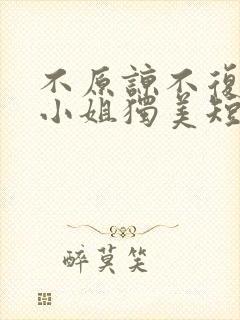 不原諒不復
小姐獨美短
醉莫笑